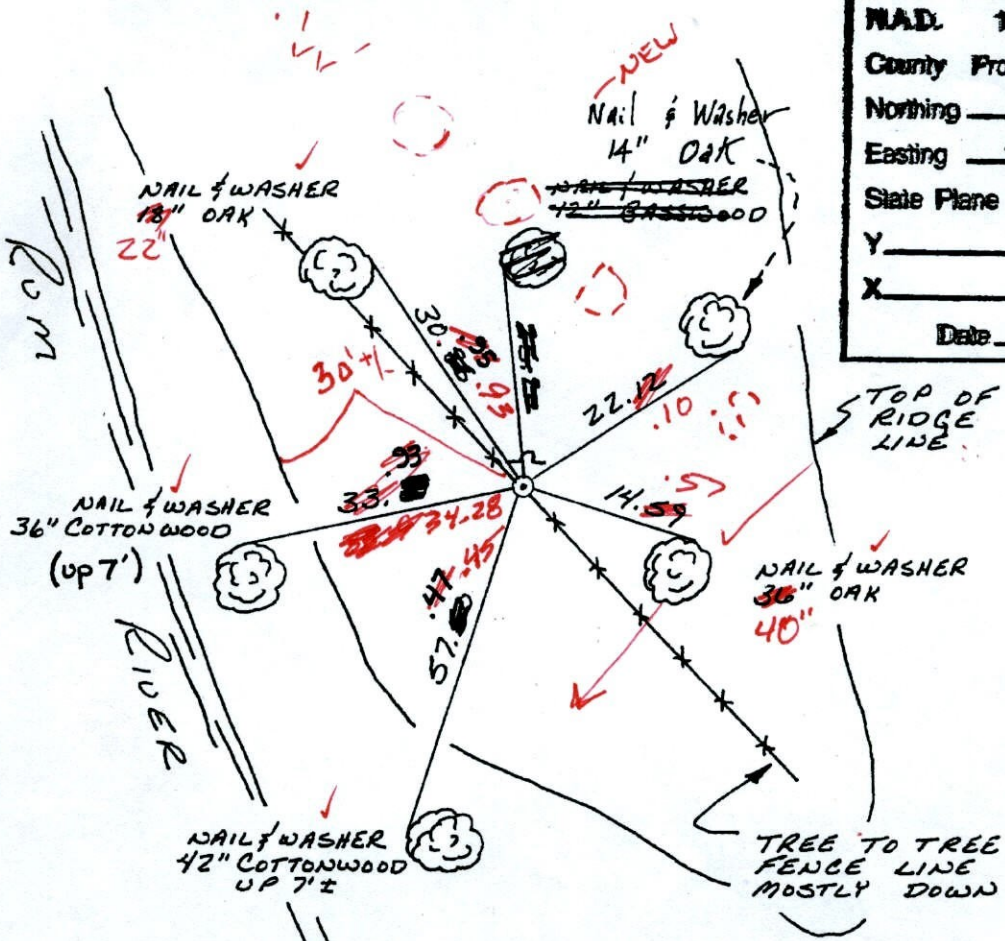 N.A.D. 1
County Pro
Northing
Easting
State Plane
Y
X
Date
NEW
Nail & Washer
14" Oak
NAIL & WASHER
12" BASSWOOD
NAIL & WASHER
18" OAK
22"
RUM
30.
.95
.93
30' +/-
22.12
.10
TOP OF
RIDGE
LINE
33.
.93
34.28
14.59
.57
NAIL & WASHER
36" COTTONWOOD
(up 7')
.47 .45
57.
NAIL & WASHER
36" OAK
40"
RIVER
NAIL & WASHER
42" COTTONWOOD
UP 7'±
TREE TO TREE
FENCE LINE
MOSTLY DOWN